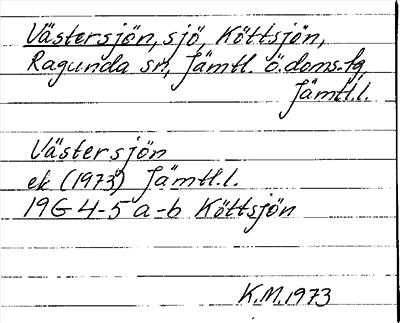 Västersjön, sjö, Köttsjön,
Ragunda sn, Jämtl. ö. doms. tg,
Jämtl.l.
Västersjön
ek (1973) Jämtl.l.
19G 4-5 a-b Köttsjön
K.M. 1973